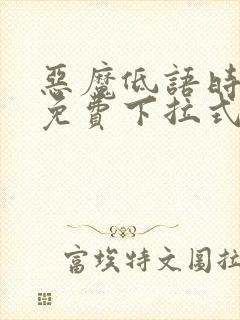 惡魔低語時
免費下拉式
富埃特文圖拉